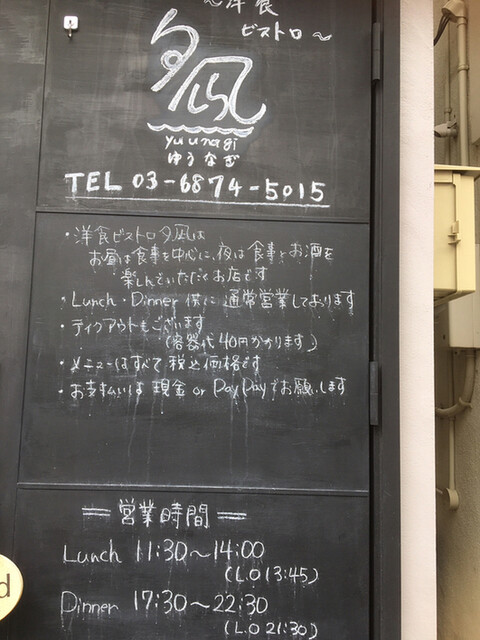 ～洋食
ビストロ～
夕凪
yuunagi
ゆうなぎ
TEL 03-6874-5015
・洋食ビストロ夕凪は
お昼は食事を中心に、夜は食事とお酒を
楽しんでいただくお店です
・Lunch・Dinner 共に 通常営業しております
・テイクアウトもございます
(容器代40円かかります。)
・メニューはすべて 税込価格です
・お支払いは 現金 or PayPayでお願いします
＝営業時間＝
Lunch 11:30～14:00
(L.O 13:45)
Dinner 17:30～22:30
(L.O 21:30)
d